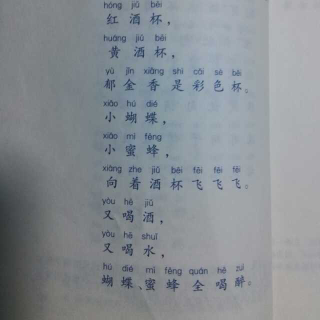 hóng jiǔ bēi
红酒杯，
huáng jiǔ bēi
黄酒杯，
yù jīn xiāng shì cǎi sè bēi
郁金香是彩色杯。
xiǎo hú dié
小蝴蝶，
xiǎo mì fēng
小蜜蜂，
xiàng zhe jiǔ bēi fēi fēi fēi
向着酒杯飞飞飞。
yòu hē jiǔ
又喝酒，
yòu hē shuǐ
又喝水，
hú dié mì fēng quán hē zuì
蝴蝶、蜜蜂全喝醉。